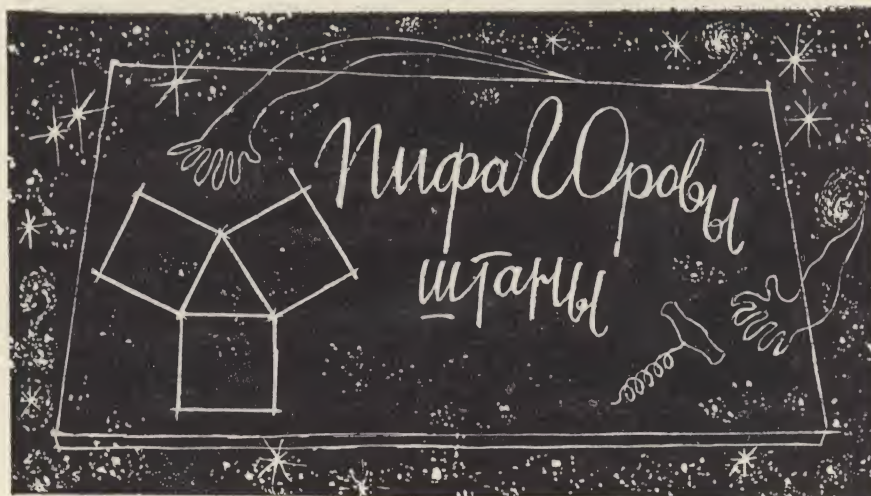 ПифаГОровы
штаны